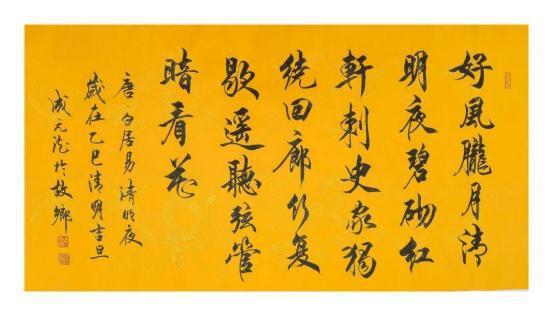 好風朧月清
明夜碧砌紅
軒刺史家獨
绕回廊行复
歇遥聽弦管
暗看花
唐白居易清明夜
歲在乙巳清明吉旦
成元於故鄉